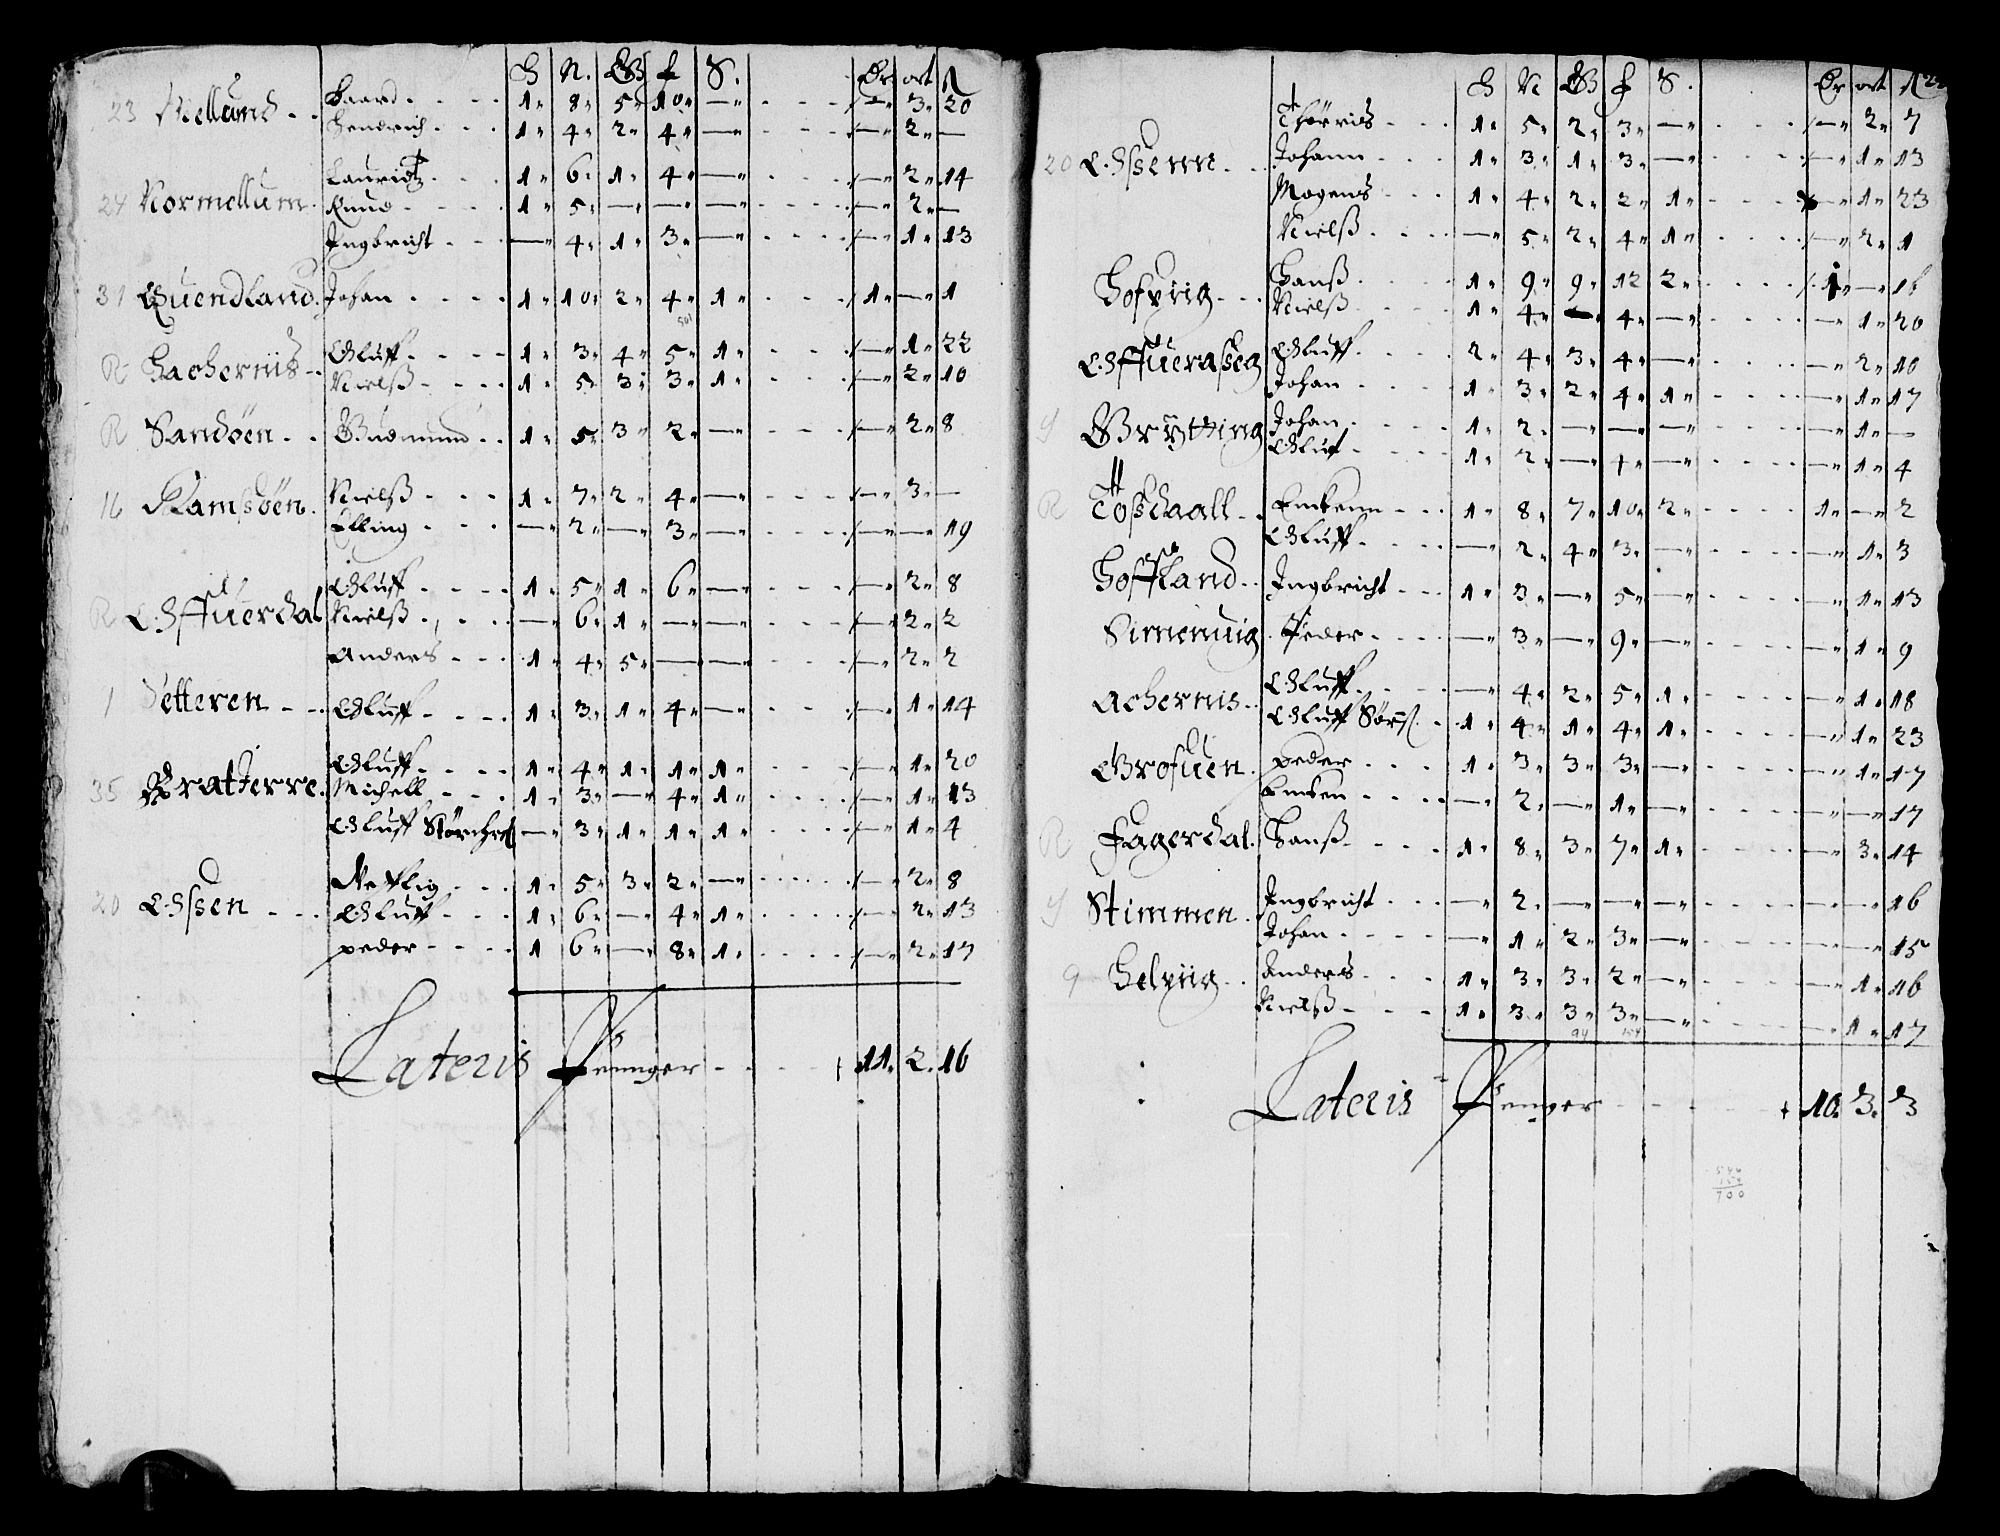 H N. G f S. Dr ort ß
23 Mellund Baard 1 8 5 10 — — 3 20
Hendrich 1 4 2 4 — — 2 —
Lauridtz 1 6 1 4 — — 2 14
24 Normellum Knud 1 5 — — — — 2 —
Ingbricht — 4 1 3 — — 1 13
31 Quendland Johan 1 10 2 4 1 1 — 1
R Hachernis Oluff 1 3 4 5 1 — 1 22
Nielß 1 5 3 3 1 — 2 10
R Sandøen Gudmund 1 5 3 2 — — 2 8
16 Ramsøen Nielß 1 7 2 4 — — 3 —
Elling — 2 — 3 — — — 19
Oluff 1 5 1 6 — — 2 8
R Offuerdal Nielß — 6 1 — — — 2 2
Anders 1 4 5 — — — 2 2
1 Vetteren Oluff 1 3 1 4 — — 1 14
Oluff 1 4 1 1 1 — 1 20
35 Bratterre Michell 1 3 — 4 1 — 1 13
Oluff — 3 1 1 1 — 1 4
1 5 3 2 — — 2 8
20 Ossen Oluff 1 6 — 4 1 — 2 13
peder 1 6 — 8 1 — 2 17
Lateris Penger 11. 2. 16
H N G f S. Dr ort ß
Thørris 1 5 2 3 — — 2 7
20 Ossenn Johann 1 3 1 3 — — 1 13
Mogens 1 4 2 2 1 — 1 23
Nielß — 5 2 4 1 — 2 1
Hofviig Hanß 1 9 9 12 2 1 — 16
Nielß 1 4 — 4 — — 1 20
Offueraßeg Oluff 2 4 3 4 — — 2 10
Johan 1 3 2 4 1 — 1 17
Grytting Johan 1 2 — — — — 1 —
Oluf 1 2 — 4 — — 1 4
R Toßdaall 1 8 7 10 2 1 — 2
Oluff — 2 4 3 — — 1 3
Hoffland Ingbricht 1 3 — 5 — — 1 13
Simenuig Peder — 3 — 9 — — 1 9
Achernis Oluff — 4 2 5 1 — 1 18
Oluff Sørß 1 4 1 4 1 — 1 23
Grofuen peder 1 3 3 3 — — 1 17
— 2 — 1 — — — 17
R Fagerdal Hanß 1 8 3 7 1 — 3 14
Stimmen Ingbricht — 2 — — — — — 16
Johan — 1 2 3 — — — 15
9 Helviig Anders 1 3 3 2 — — 1 16
Nielß 1 3 3 3 — — 1 17
Lateris Penger 10. 3. 3
546
154
700